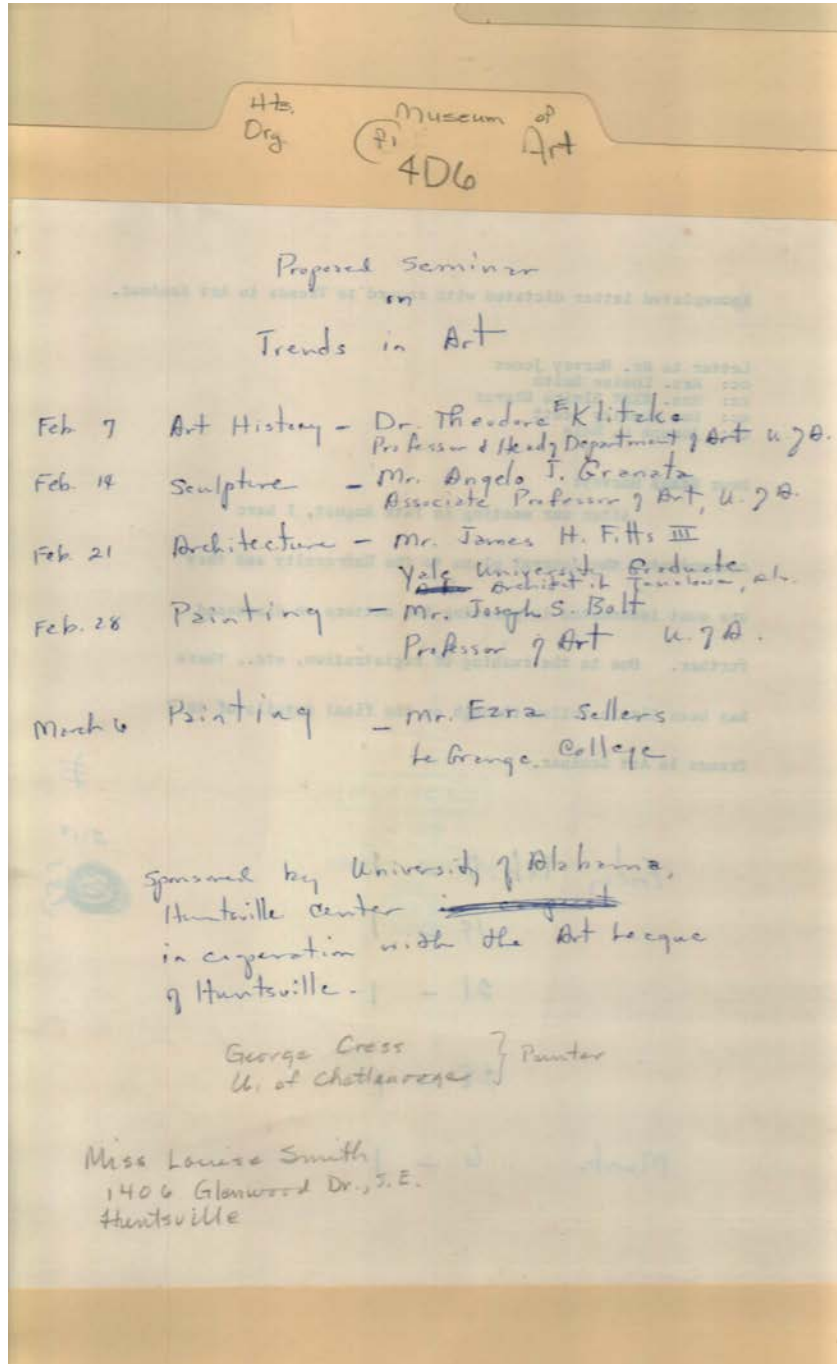 Hts. Museum of
Org. Art
4D6
Proposed Seminar
on
Trends in Art
Feb 7 Art History - Dr. Theodore E Klitzke
Professor & Head, Department of Art U of A.
Feb. 14 Sculpture - Mr. Angelo J. Granata
Associate Professor of Art, U. of A.
Feb. 21 Architecture - Mr. James H. Fitts III
Yale University Graduate
Architect in Tuscaloosa, Ala.
Feb. 28 Painting - Mr. Joseph S. Bolt
Professor of Art U. of A.
March 6 Painting - Mr. Ezra Sellers
La Grange College
Sponsored by University of Alabama,
Huntsville Center
in cooperation with the Art League
of Huntsville.
George Cress } Painter
U. of Chattanooga
Miss Louise Smith
1406 Glenwood Dr., S.E.
Huntsville